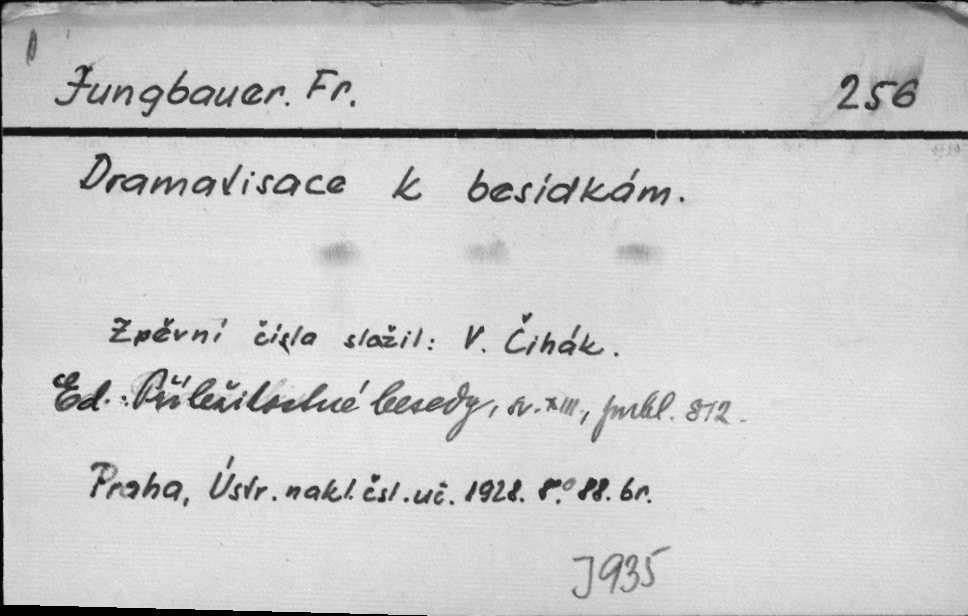 Jungbauer. Fr. 256
Dramatisace k besídkám.
Zpěvní čísla složil: V. Čihák.
Ed.: Příležitostné besedy, sv. XIII., publ. 812.
Praha, Ústr. nakl. čsl. uč. 1928. 8.° 88. br.
J 935